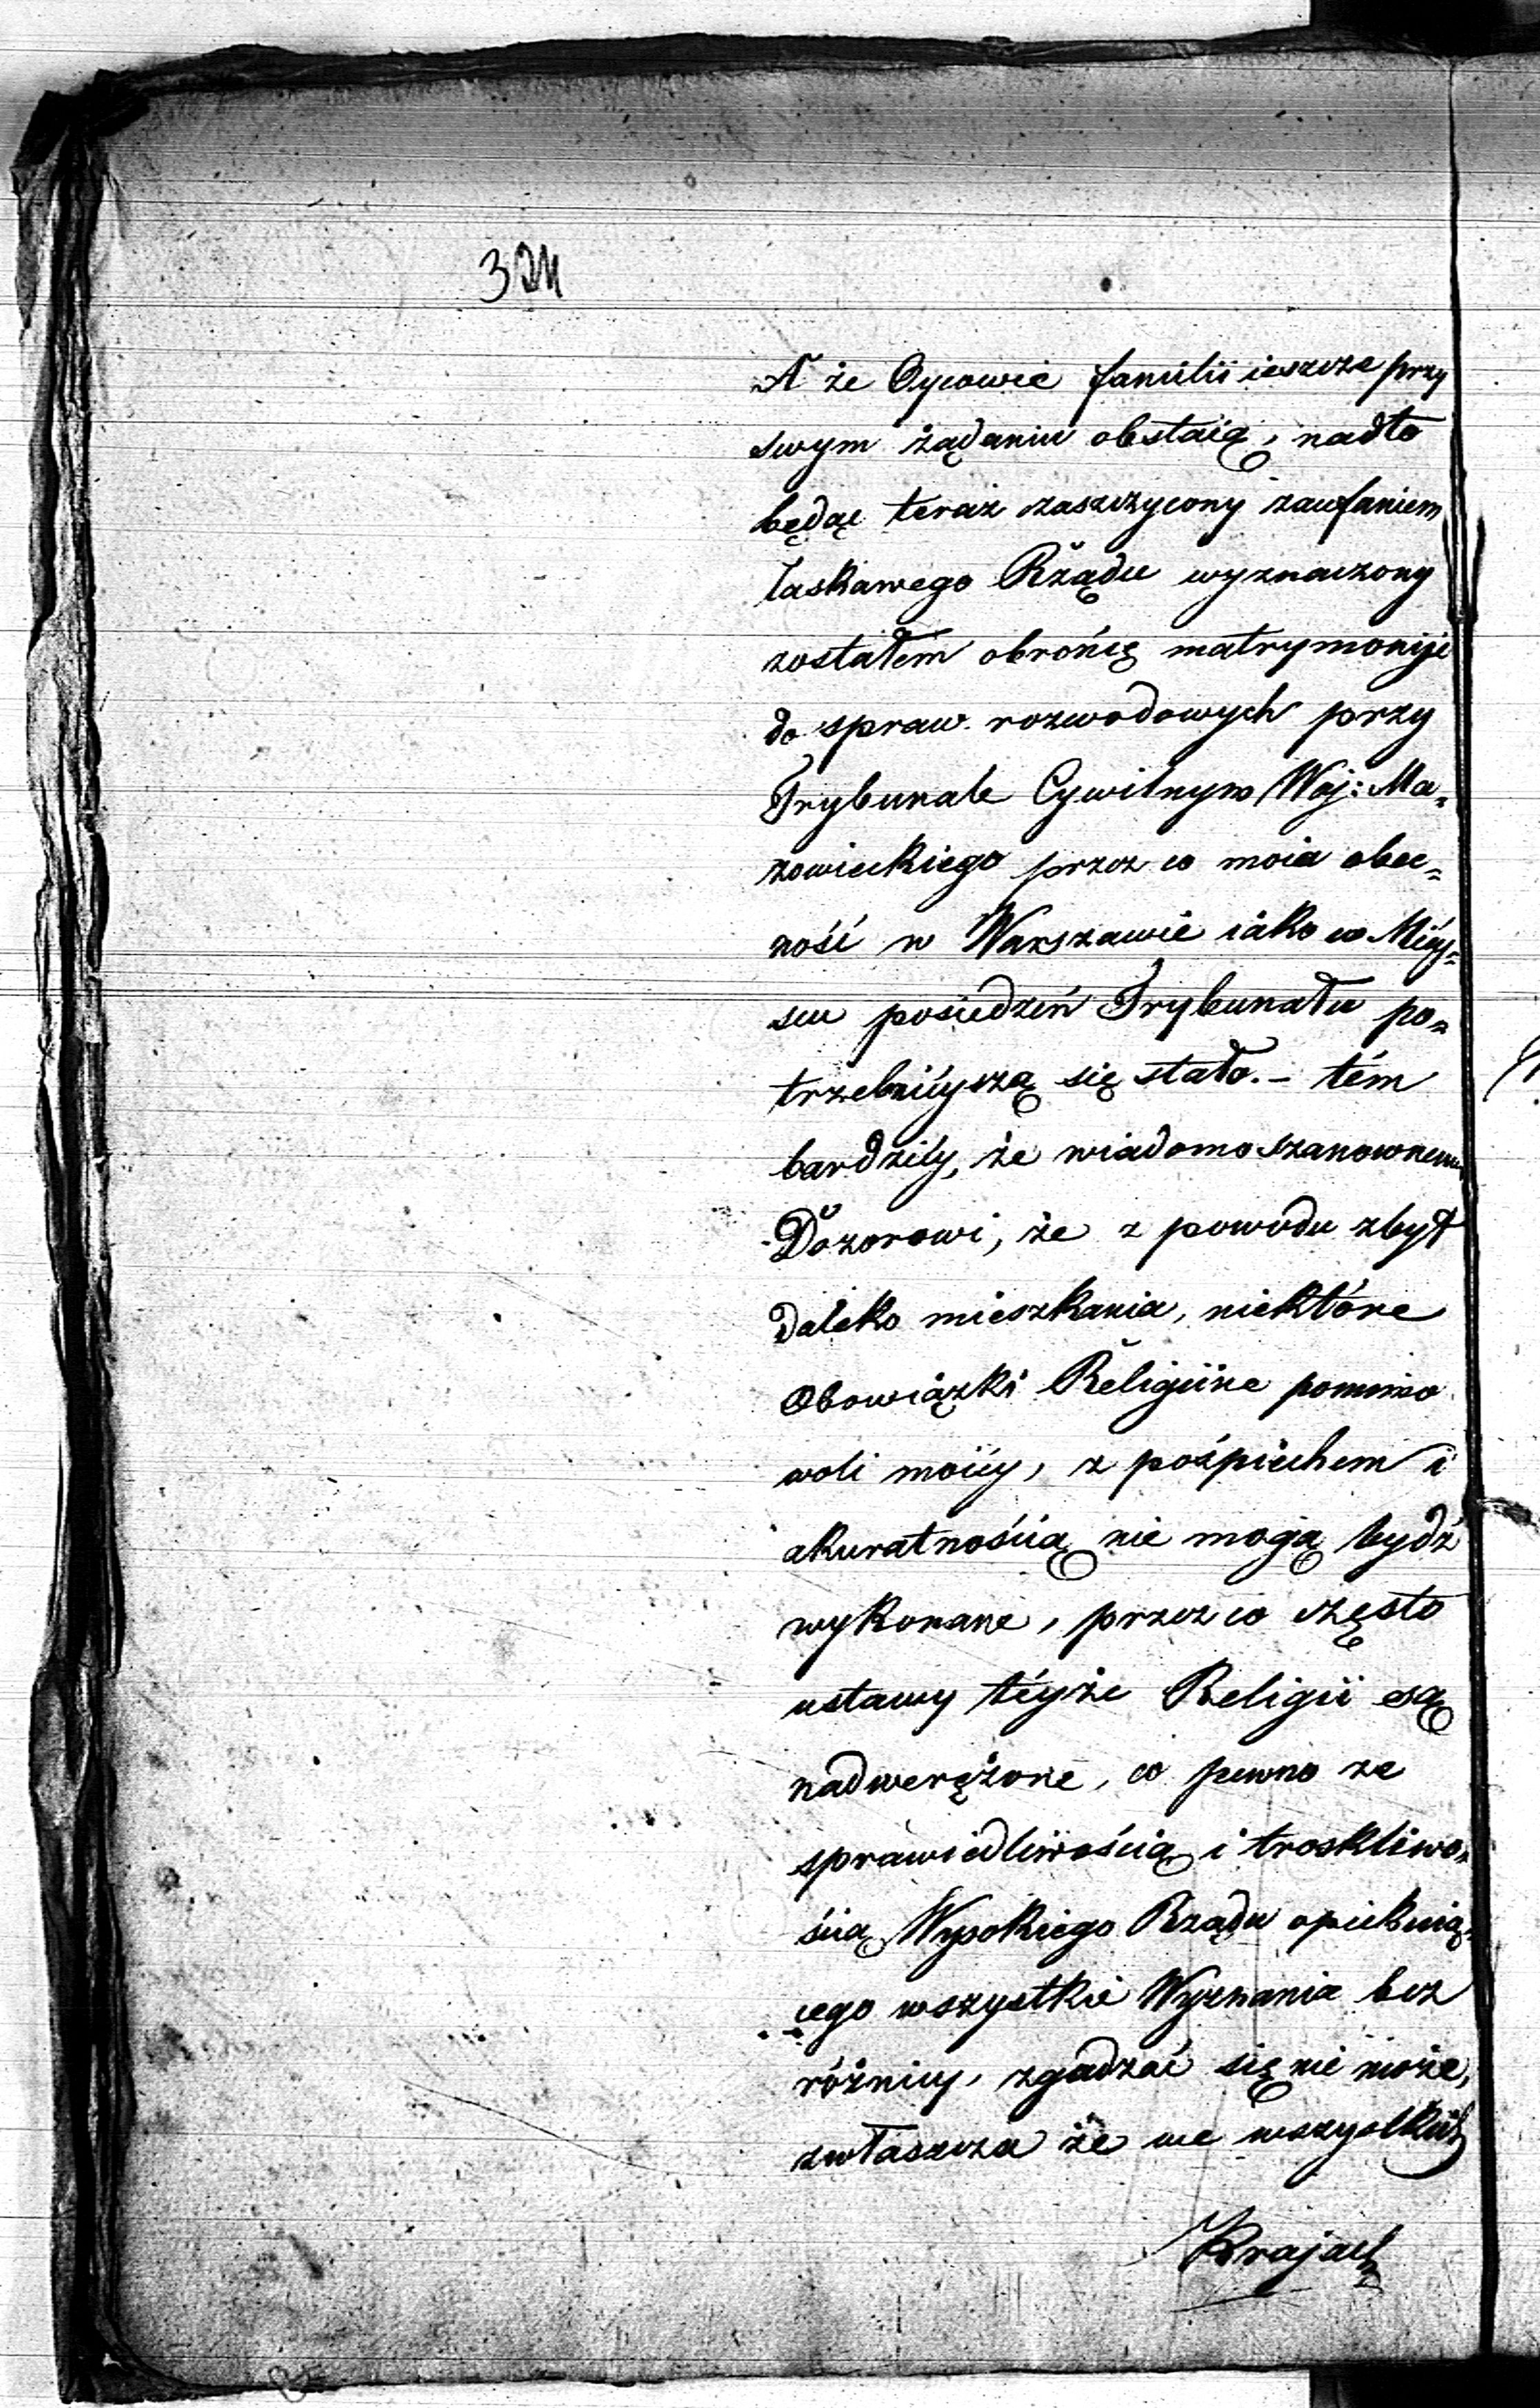 324
A że Oycowie familii ieszcze przy
swym żądaniu obstaią, nadto
będąc teraz zaszczycony zaufaniem
łaskawego Rządu wyznaczony
zostałem obrońcą matrymonije
do spraw rozwodowych przy
Trybunale Cywilnym Woj: Ma-
zowieckiego przez co moia obec-
ność w Warszawie iako w Miéy-
scu posiedzeń Trybunału po-
trzebnieyszą się stało. – tém
bardziéy, że wiadomo szanownemu
Dozorowi, że z powodu zbyt
daleko mieszkania, niektóre
Obowiązki Religiine pomimo
woli moiéy, z pośpiechem i
akuratnością nie mogą bydź
wykonane, przez co często
ustawy téyże Religii są
nadwerężone, co pewno ze
sprawiedliwością i troskliwo-
ścią Wysokiego Rządu opiekuią-
cego wszystkie Wyznania bez
różnicy, zgadzać się nie może,
zwłaszcza że we wszystkich
Krajach